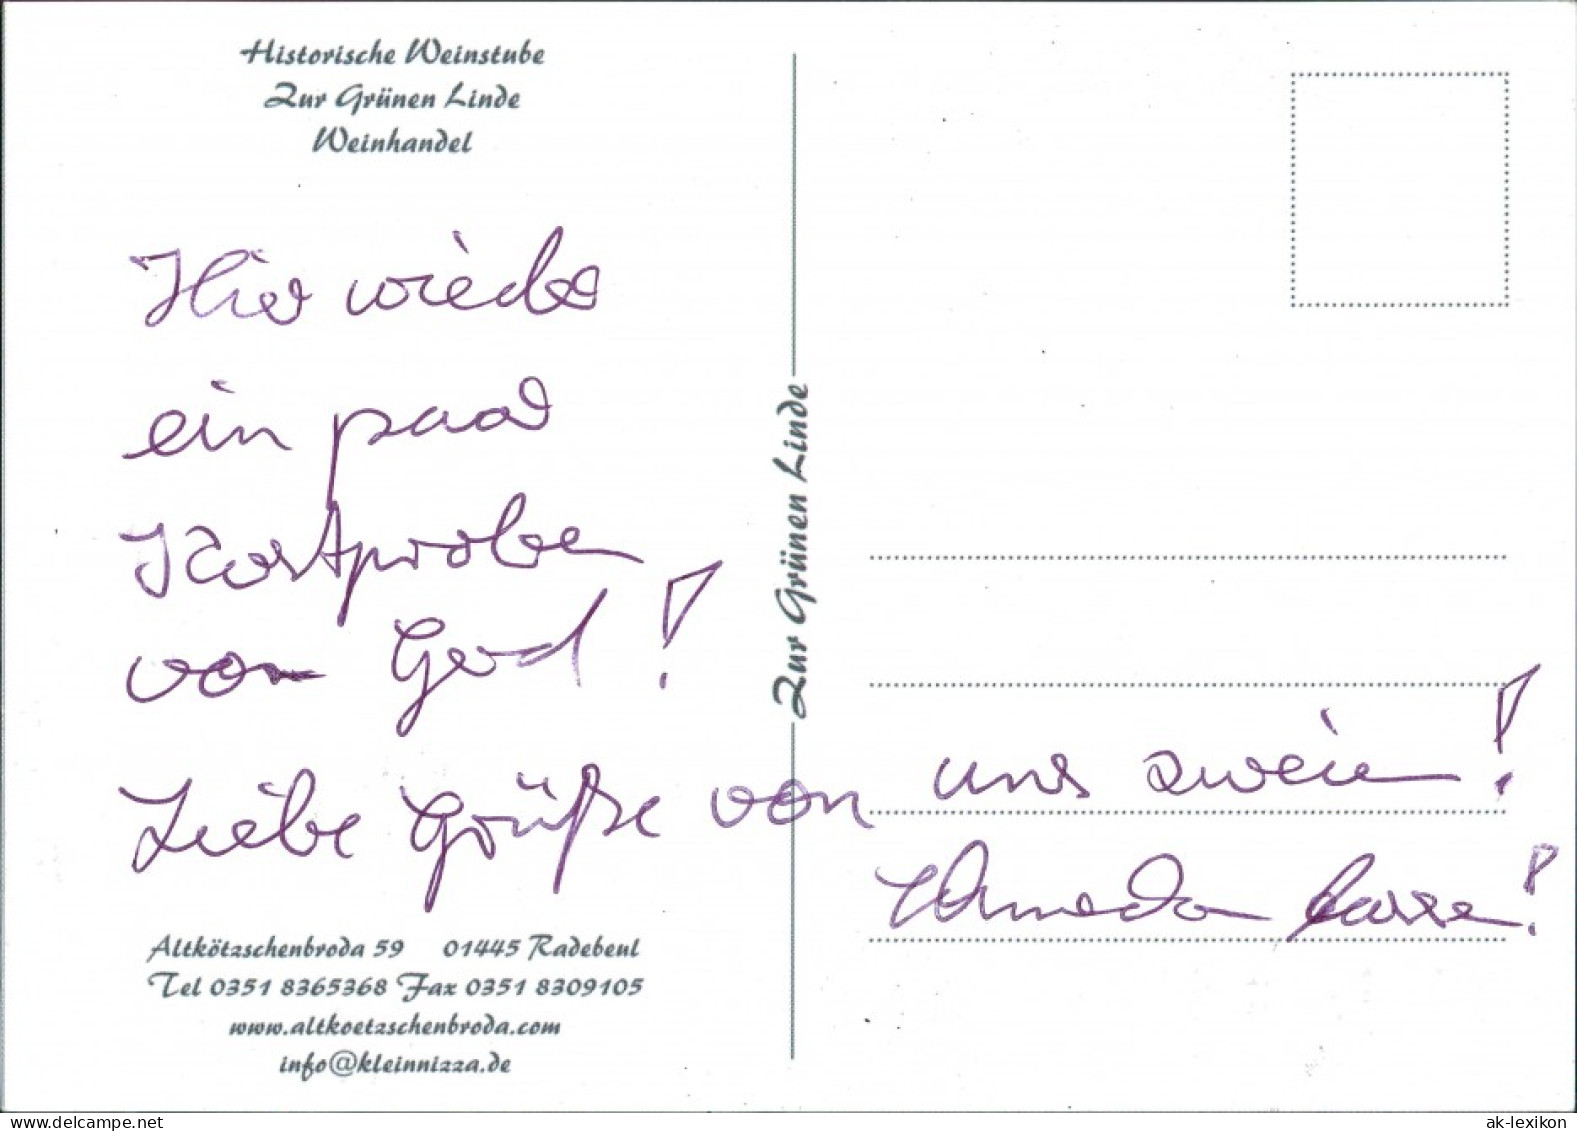 Historische Weinstube
Zur Grünen Linde
Weinhandel
Hier wieder
ein paar
Kostproben
von Gerd!
Liebe Grüße von uns zweien!
Altkötzschenbroda 59 01445 Radebeul
Tel 0351 8365368 Fax 0351 8309105
www.altkoetzschenbroda.com
info@kleinnizza.de
Zur Grünen Linde
www.delcampe.net
ak-lexikon